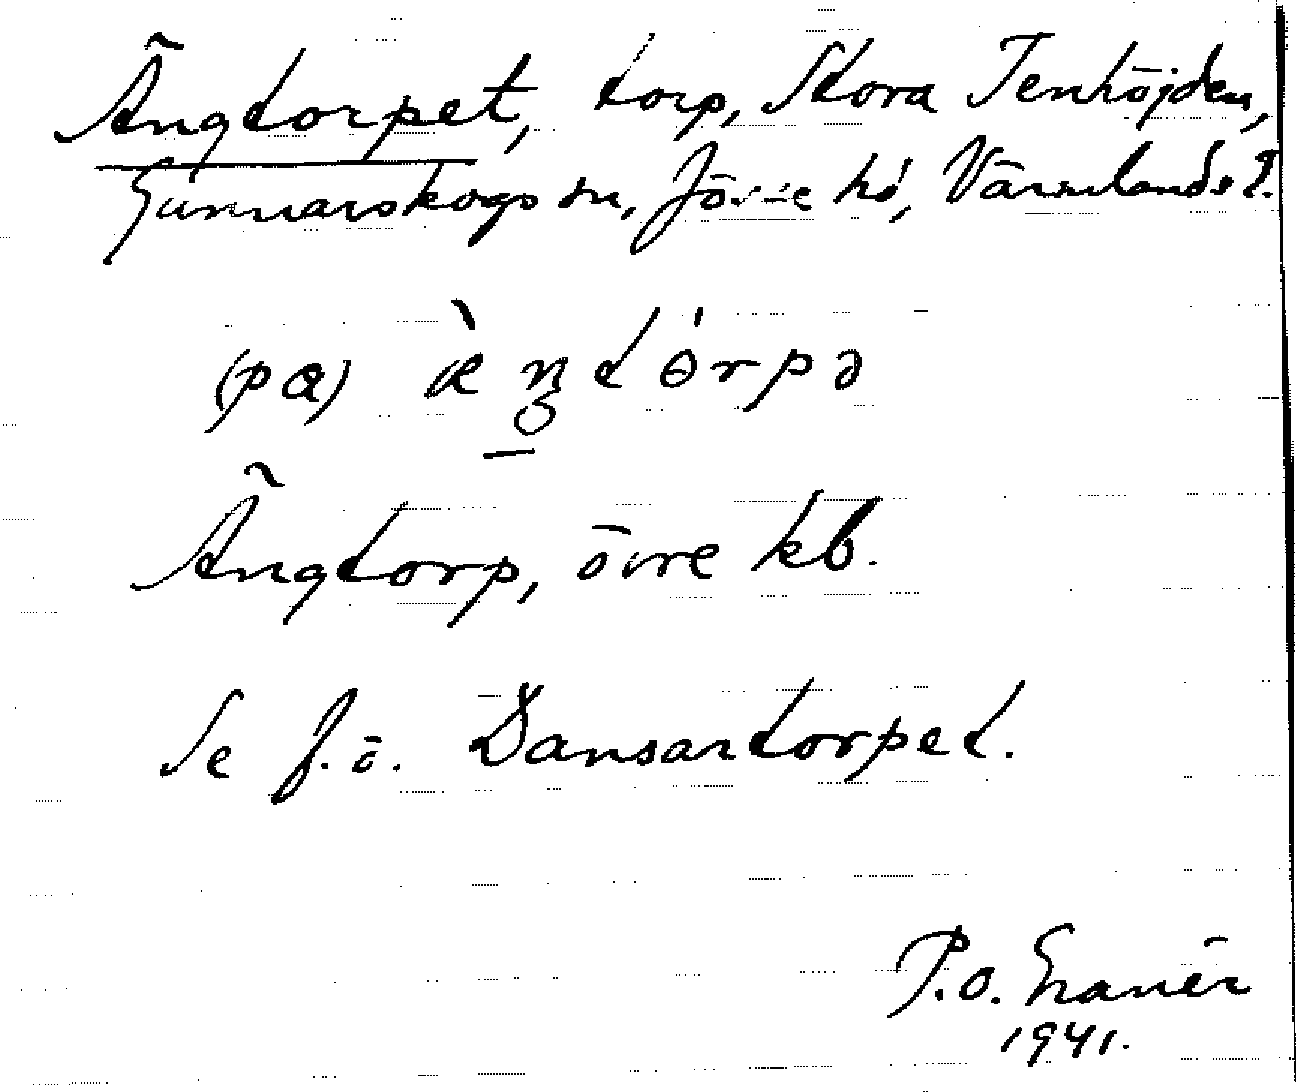 Ängtorpet, torp, Stora Tenhöjden,
Gunnarskogs sn, Jösse hd, Värmlands l.
(pα) æ̀ŋtɵ́rpə
Ängtorp, övre kb.
Se f.ö. Dansartorpet.
P.O. Granér
1941.